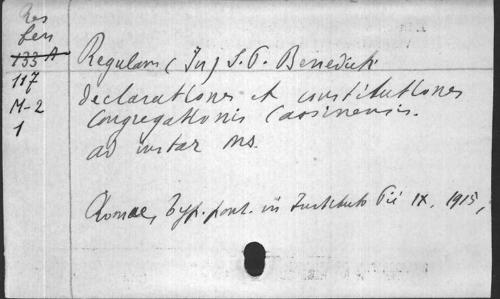 Res
Len
133 A
117
M-2
1
Regulam (In) S. P. Benedicti
declarationes et constitutiones
congregationis Casinensis.
ad instar ms.
Romae, Typ. pont. in Instituto Pii IX, 1915,